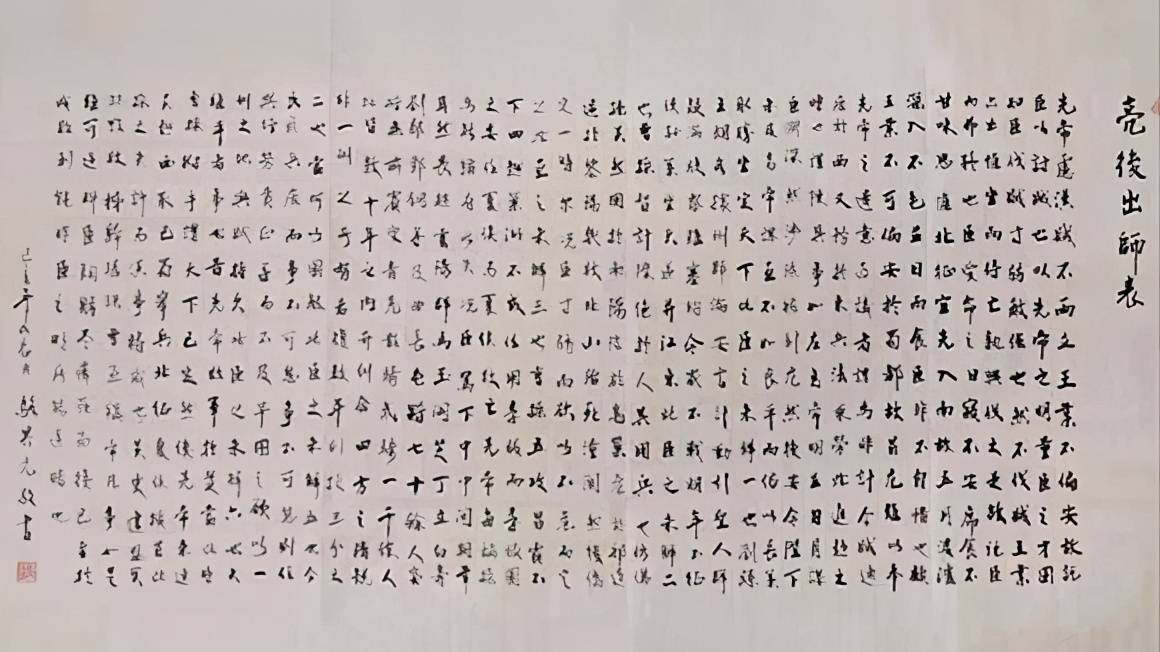 亮後出師表
先帝慮漢賊不兩立王業不偏安故託
臣以討賊也以先帝之明量臣之才固
知臣伐賊才弱敵強也然不伐賊王業
亦亡惟坐而待亡孰與伐之是故託臣
而弗疑也臣受命之日寢不安席食不
甘味思惟北征宜先入南故五月渡瀘
深入不毛並日而食臣非不自惜也顧
王業不可偏安於蜀都故冒危難以奉
先帝之遺意而議者謂為非計今賊適
疲於西又務於東兵法乘勞此進趨之
時也謹陳其事如左高帝明並日月謀
臣淵深然涉險被創危然後安今陛下
未及高帝謀臣不如良平而欲以長策
取勝坐定天下此臣之未解一也劉繇
王朗各據州郡論安言計動引聖人群
疑滿腹眾難塞胸今歲不戰明年不征
使孫策坐大遂并江東此臣之未解二
也曹操智計殊絕於人其用兵也彷彿
孫吳然困於南陽險於烏巢危於祁連
逼於黎陽幾敗北山殆死潼關然後偽
定一時爾況臣才弱而欲以不危而定
之此臣之未解三也曹操五攻昌霸不
下四越巢湖不成任用李服而李服圖
之委任夏侯而夏侯敗亡先帝每稱操
為能猶有此失況臣駑下中中間期年
耳然喪趙雲陽群馬玉閻芝丁立白壽
劉郃鄧銅等及曲長屯將七十餘人突
將無前賨叟青羌散騎武騎一千餘人
此皆數十年之內所糾合四方之精銳
非一州之所有若復數年則損三分之
二也當何以圖敵此臣之未解五也今
民窮兵疲而事不可息事不可息則住
與行勞費正等而不及早圖之欲以一
州之地與賊持久此臣之未解六也夫
難平者事也昔先帝敗軍於楚當此時
曹操拊手謂天下已定然後先帝東連
吳越西取巴蜀舉兵北征夏侯授首此
操之失計而漢事將成也然後吳更違盟關
羽毀敗秭歸蹉跌曹丕稱帝凡事如是
難可逆料臣鞠躬盡瘁死而後已至於
成敗利鈍非臣之明所能逆睹也
己亥年八月書